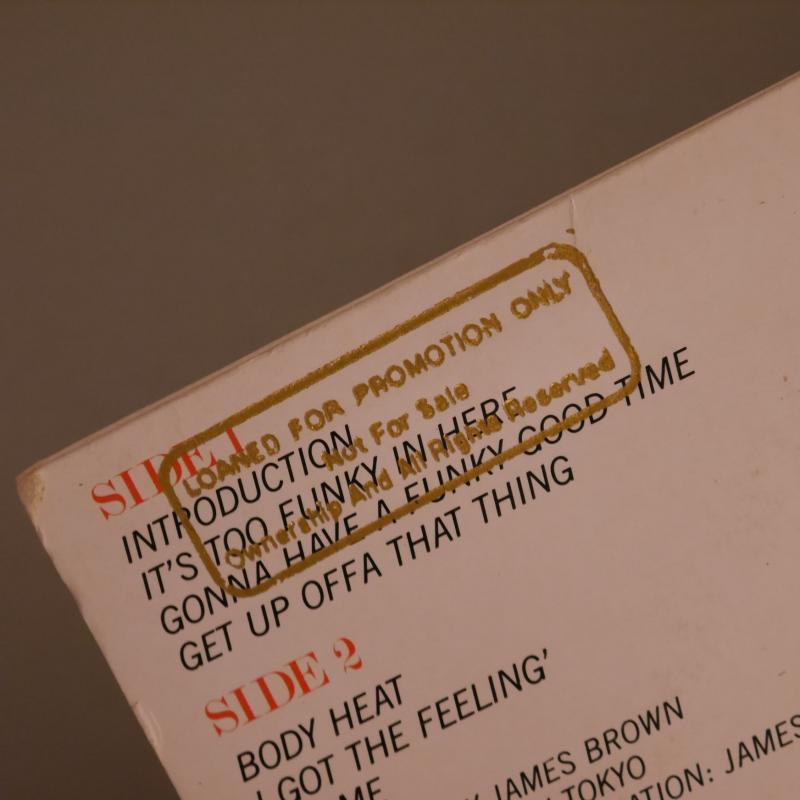 SIDE 1
LOANED FOR PROMOTION ONLY
Not For Sale
Ownership And All Rights Reserved
INTRODUCTION
IT'S TOO FUNKY IN HERE
GONNA HAVE A FUNKY GOOD TIME
GET UP OFFA THAT THING
SIDE 2
BODY HEAT
I GOT THE FEELING'
JAMES BROWN
TOKYO
JAMES